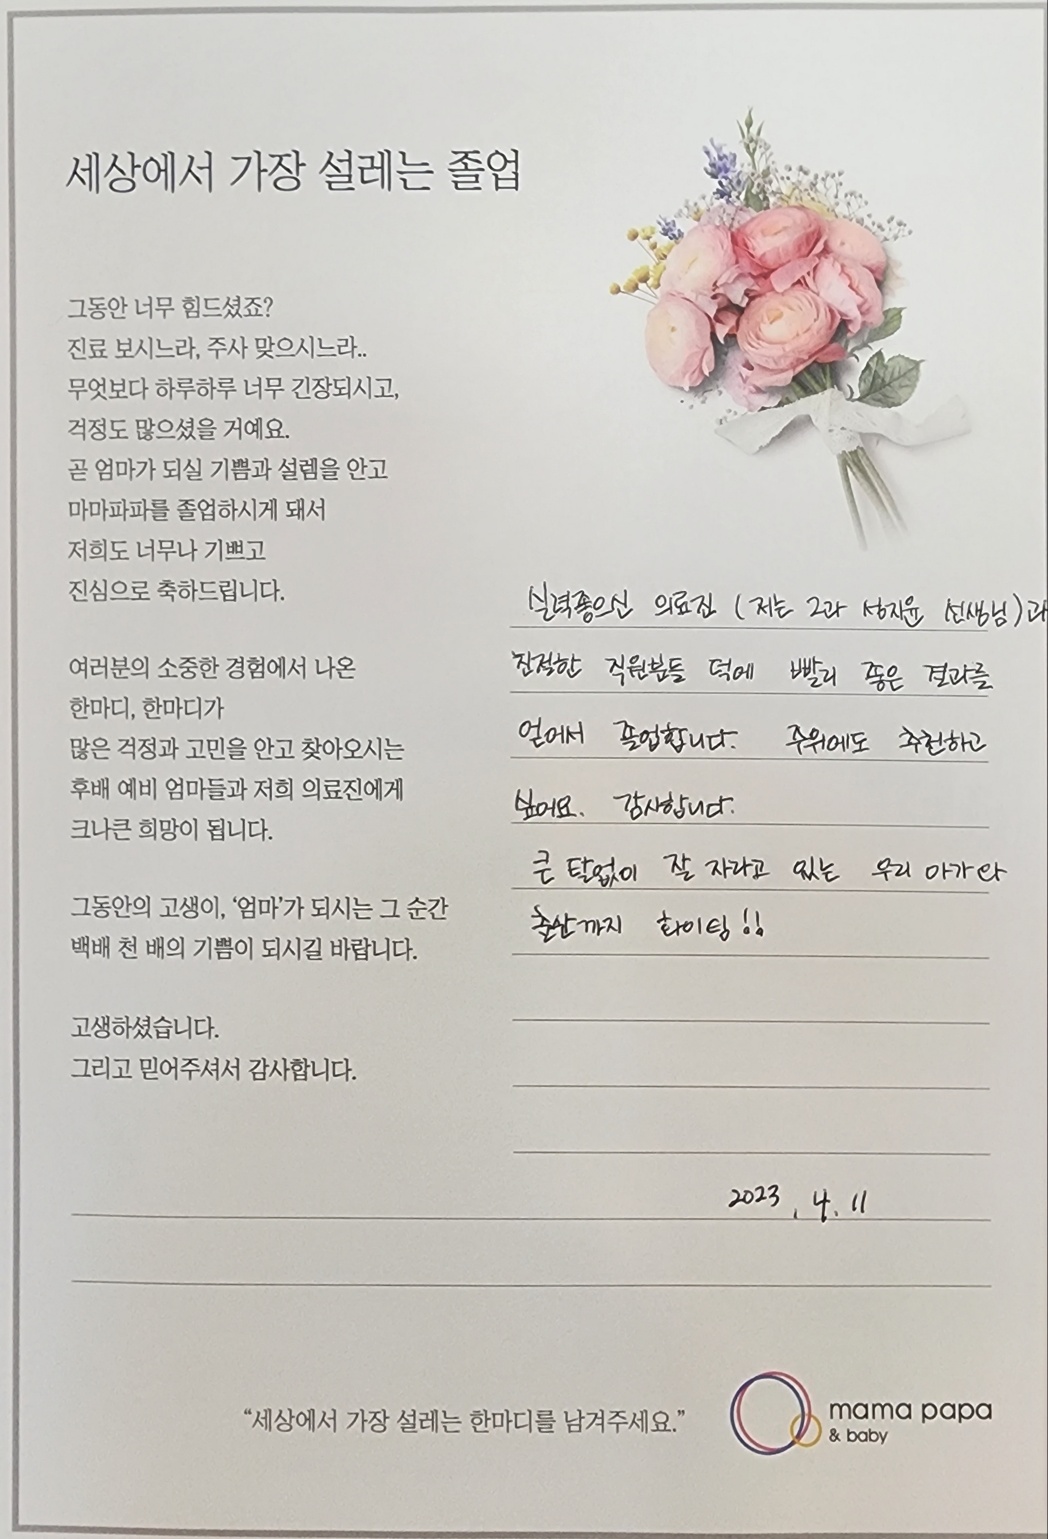 세상에서 가장 설레는 졸업
그동안 너무 힘드셨죠?
진료 보시느라, 주사 맞으시느라..
무엇보다 하루하루 너무 긴장되시고,
걱정도 많으셨을 거예요.
곧 엄마가 되실 기쁨과 설렘을 안고
마마파파를 졸업하시게 돼서
저희도 너무나 기쁘고
진심으로 축하드립니다.
여러분의 소중한 경험에서 나온
한마디, 한마디가
많은 걱정과 고민을 안고 찾아오시는
후배 예비 엄마들과 저희 의료진에게
크나큰 희망이 됩니다.
그동안의 고생이, ‘엄마’가 되시는 그 순간
백배 천 배의 기쁨이 되시길 바랍니다.
고생하셨습니다.
그리고 믿어주셔서 감사합니다.
실력좋으신 의료진 (저는 2과 성지윤 선생님)과
친절한 직원분들 덕에 빨리 좋은 결과를
얻어서 졸업합니다. 주위에도 추천하고
싶어요. 감사합니다.
큰 탈없이 잘 자라고 있는 우리 아가야
출산까지 화이팅!!
2023. 4. 11
“세상에서 가장 설레는 한마디를 남겨주세요.”
mama papa
& baby